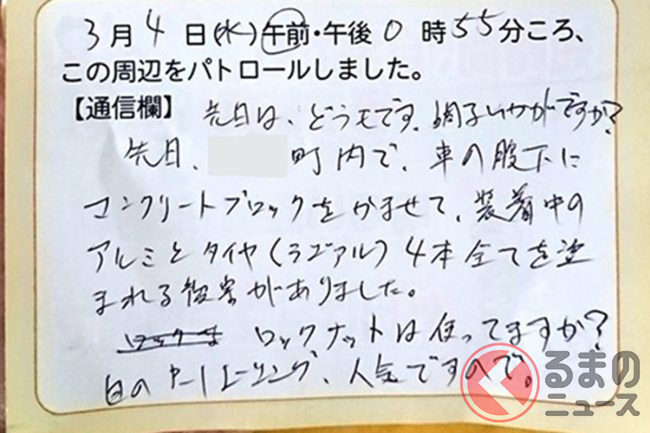 3月4日(水)午前・午後0時55分ころ、
この周辺をパトロールしました。
【通信欄】 先日は、どうもです。調子いかがですか?
先日、 町内で、車の股下に
コンクリートブロックをかませて、装着中の
アルミとタイヤ(ラジアル)4本全てを盗
まれる被害がありました。
ロックナットは使ってますか?
白の レーシング、人気ですので。
くるまのニュース